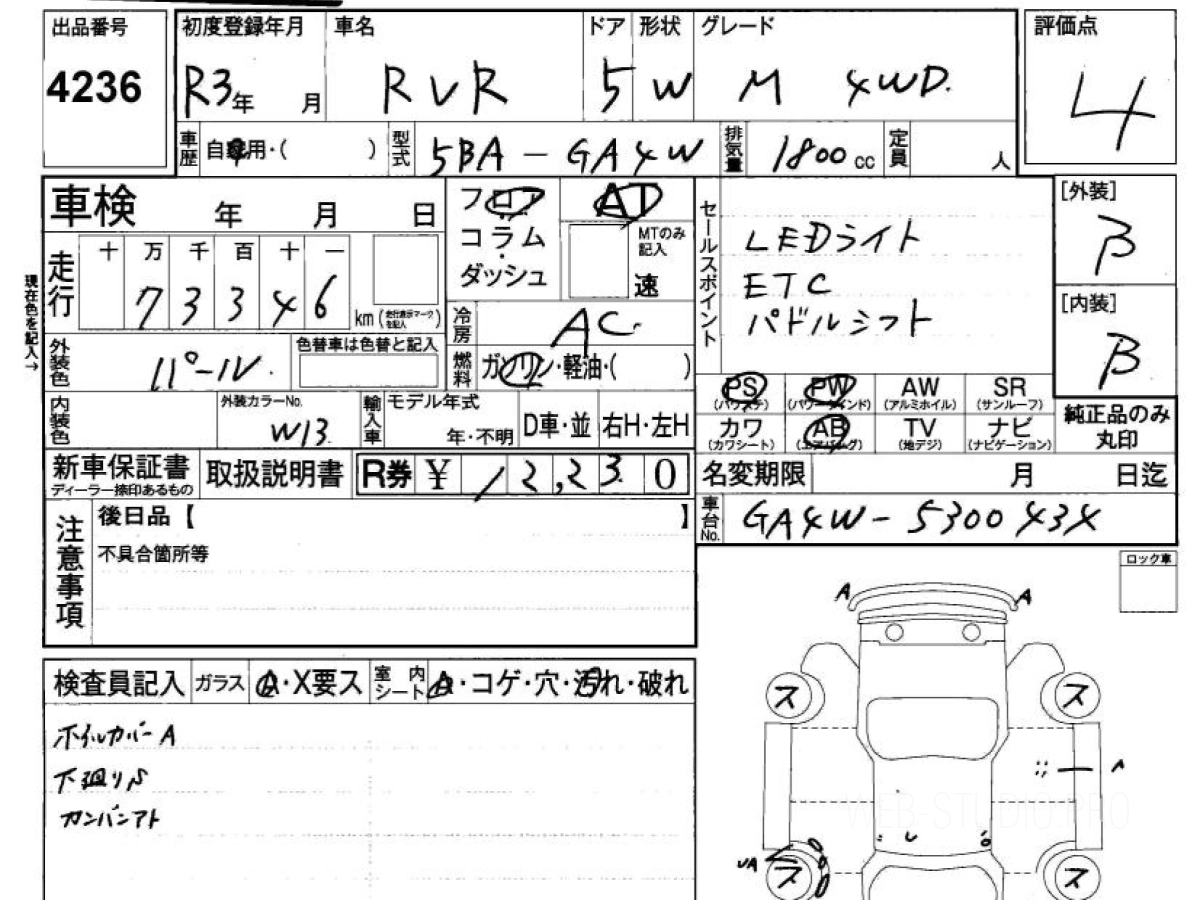 出品番号 4236
初度登録年月 R3年 月
車名 RVR
ドア 5
形状 W
グレード M 4WD.
評価点 4
車歴 自家用・( )
型式 5BA-GA4W
排気量 1800cc
定員 人
車検 年 月 日
フロア コラム・ダッシュ
AT
MTのみ記入 速
セールスポイント
LEDライト
ETC
パドルシフト
[外装] B
[内装] B
現在色を記入→
走行 十 万 千 百 十 一
7 3 3 4 6 km (走行表示マークを記入)
冷房 AC.
燃料 ガソリン・軽油・( )
外装色 パール
色替車は色替と記入
内装色
外装カラーNo. W13.
輸入車 モデル年式 年・不明
D車・並 右H・左H
PS (パワステ) PW (パワーウインド) AW (アルミホイル) SR (サンルーフ)
カワ (カワシート) AB (エアバッグ) TV (地デジ) ナビ (ナビゲーション)
純正品のみ丸印
新車保証書 ディーラー捺印あるもの
取扱説明書
R券 ¥ 12,230
名変期限 月 日迄
車台No. GA4W-5300434
注意事項
後日品【 】
不具合箇所等
ロック車
検査員記入 ガラス A・X要ス 室内シート A・コゲ・穴・汚れ・破れ
ホイルカバーA
下廻りS
カンバンアト
A A
ス ス
A
UA ス ス
WEB-STUDIO.PRO